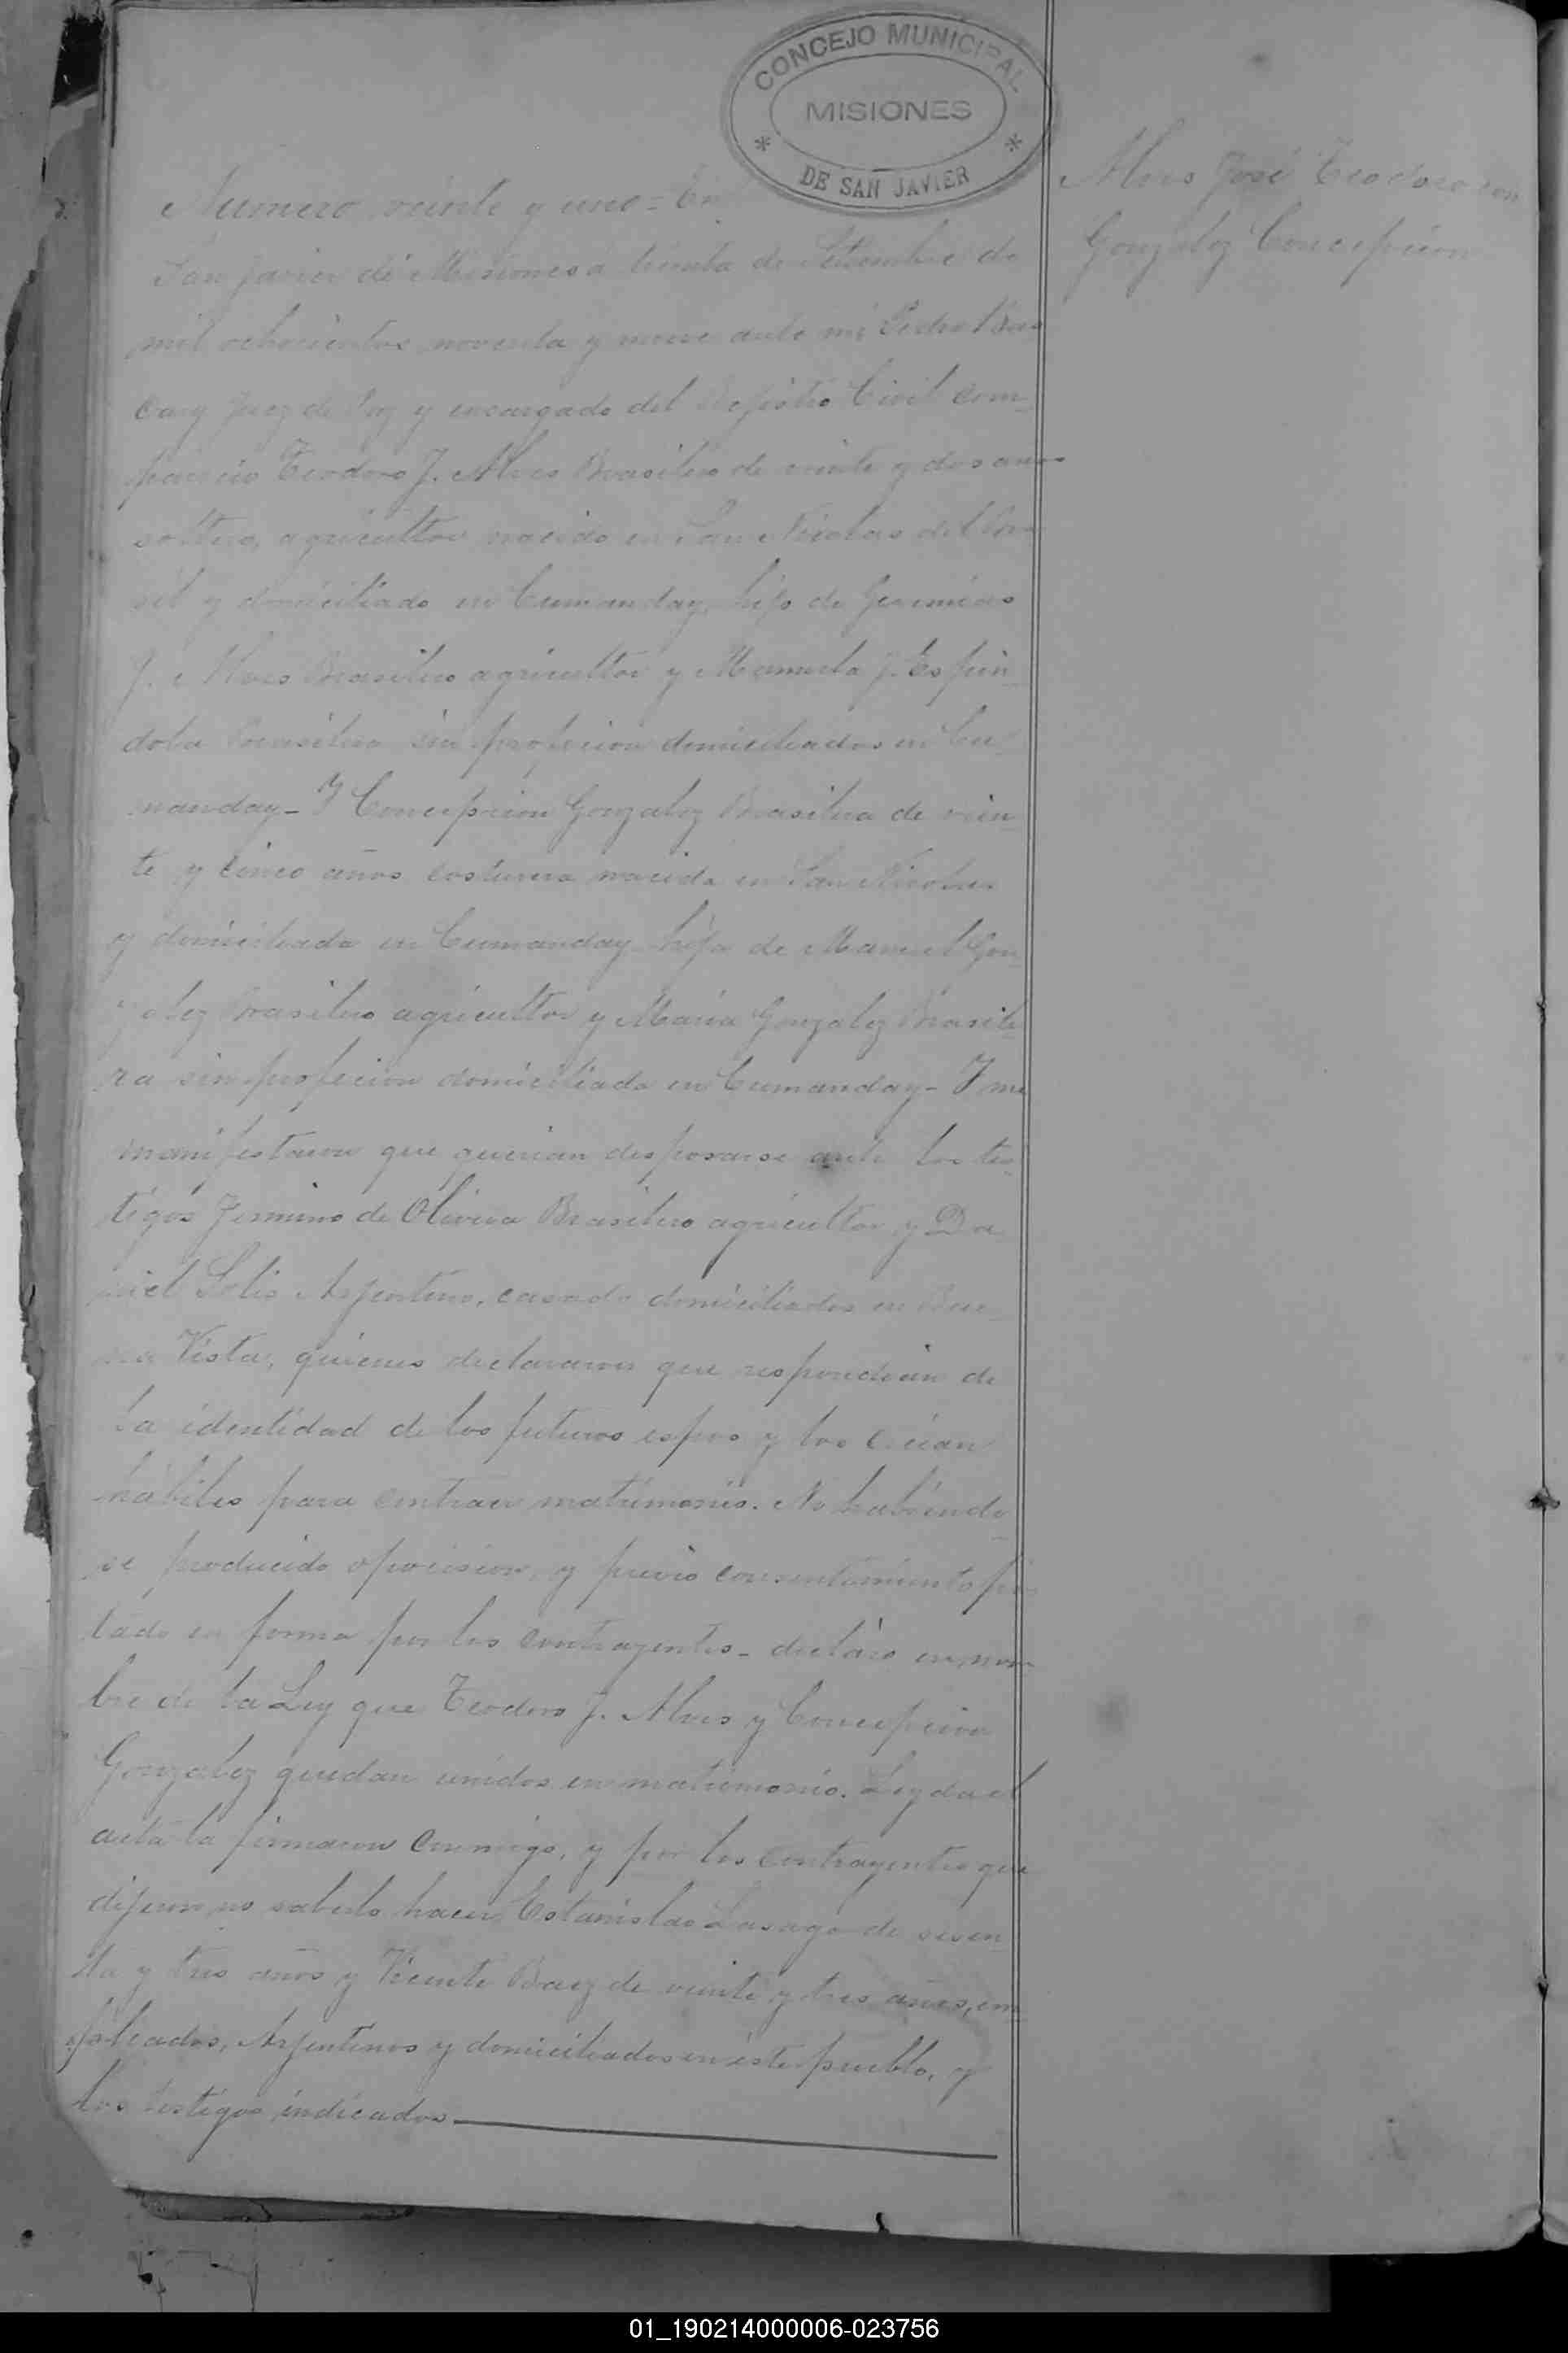 CONCEJO MUNICIPAL
MISIONES
DE SAN JAVIER
Alves José Teodoro con
Gonzalez Concepcion
Numero veinte y uno = En
San Javier de Misiones a treinta de Setiembre de
mil ochocientos noventa y nueve ante mi Pedro
Juez de Paz y encargado del Rejistro Civil com-
parecio Teodoro J. Alves Brasilero de veinte y dos años
soltero, agricultor nacido en San Nicolas del Bra-
sil y domiciliado en Cumanday, hijo de Geremias
J. Alves Brasilero agricultor y Manuela J. Espin-
dola Brasilera sin profecion domiciliados en Cu-
manday - Y Concepcion Gonzalez Brasilera de vein-
te y cinco años costurera nacida en San Nicolas
y domiciliada en Cumanday hija de Manuel Gon-
zalez Brasilero agricultor y Maria Gonzalez Brasile-
ra sin profecion domiciliada en Cumanday - Y me
manifestaron que querian desposarse ante los tes-
tigos Fermino de Olivera Brasilero agricultor y Da-
niel Solis Arjentino, casado domiciliados en Bue-
na Vista, quienes declararon que respondian de
la identidad de los futuros espos y los creian
habiles para contraer matrimonio. No habiendo-
se producido oposision, y previo consentimiento pres-
tado en forma por los contrayentes - declaro en nom-
bre de la Ley que Teodoro J. Alves y Concepcion
Gonzalez quedan unidos en matrimonio. Leyda el
acta la firmaron conmigo, y por los contrayentes que
dijeron no saberlo hacer Estanislao Lasaga de sesen-
ta y tres años y Vicente Baez de veinte y tres años, em-
pleados, Arjentinos y domiciliados en este pueblo, y
los testigos indicados
01_190214000006-023756